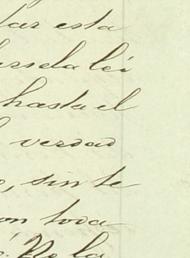 dar esta
dersela lei
hasta el
verdad
, sin te
on toda
. No la